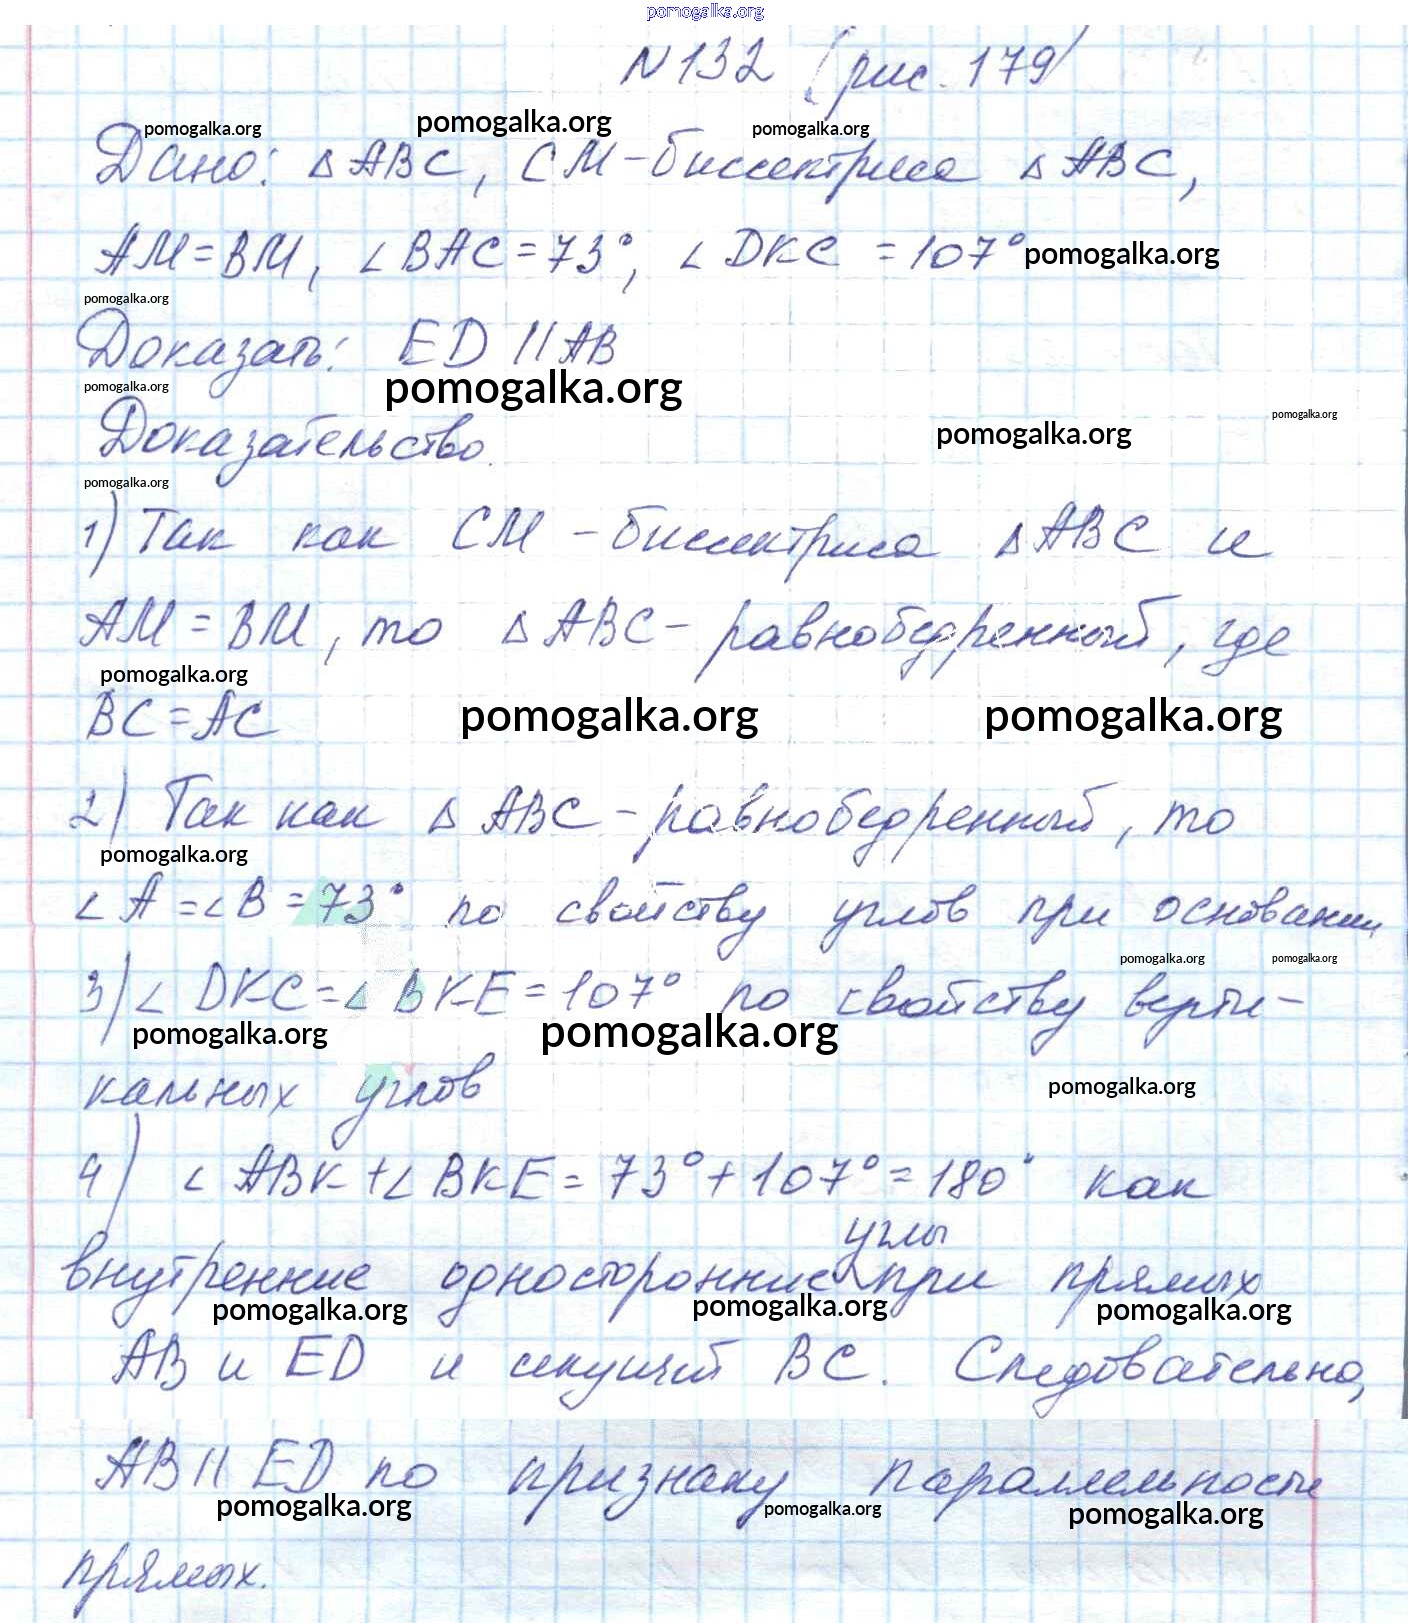 pomogalka.org
N 132 (рис. 179)
pomogalka.org pomogalka.org pomogalka.org
Дано: △ ABC, CM - биссектриса △ ABC,
AM = BM, ∠ BAC = 73°, ∠ DKC = 107° pomogalka.org
pomogalka.org
Доказать: ED || AB
pomogalka.org pomogalka.org pomogalka.org
Доказательство. pomogalka.org
pomogalka.org
1) Так как CM - биссектриса △ ABC и
AM = BM, то △ ABC - равнобедренный, где
pomogalka.org
BC = AC pomogalka.org pomogalka.org
2) Так как △ ABC - равнобедренный, то
pomogalka.org
∠ A = ∠ B = 73° по свойству углов при основании
pomogalka.org pomogalka.org
3) ∠ DKC = ∠ BKE = 107° по свойству верти-
pomogalka.org pomogalka.org
кальных углов pomogalka.org
4) ∠ ABK + ∠ BKE = 73° + 107° = 180° как
углы
внутренние односторонние при прямых
pomogalka.org pomogalka.org pomogalka.org
AB и ED и секущей BC. Следовательно,
AB || ED по признаку параллельности
pomogalka.org pomogalka.org pomogalka.org
прямых.